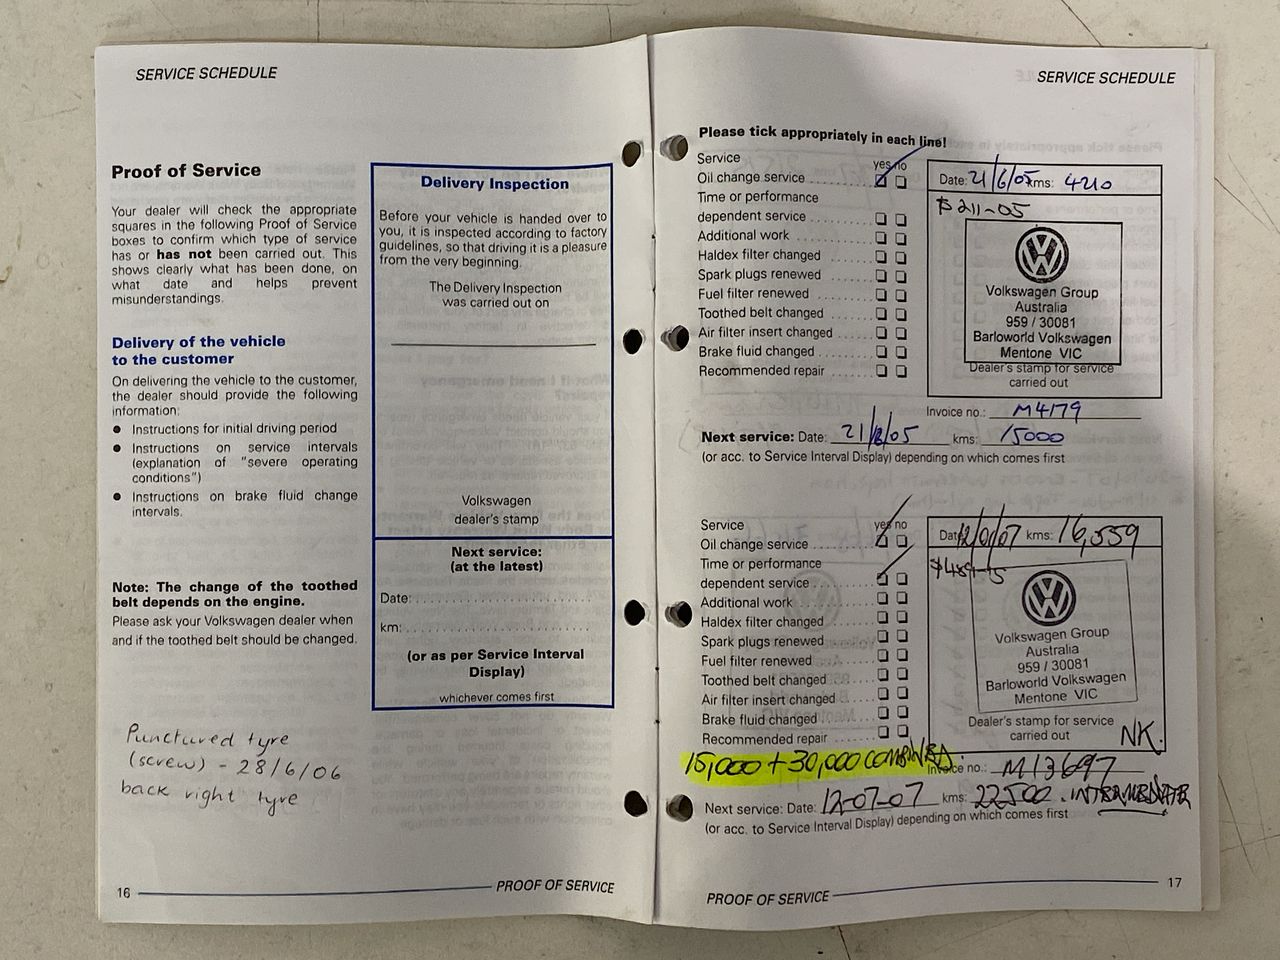 SERVICE SCHEDULE
Proof of Service
Your dealer will check the appropriate
squares in the following Proof of Service
boxes to confirm which type of service
has or has not been carried out. This
shows clearly what has been done, on
what date and helps prevent
misunderstandings.
Delivery of the vehicle
to the customer
On delivering the vehicle to the customer,
the dealer should provide the following
information:
● Instructions for initial driving period
● Instructions on service intervals
(explanation of "severe operating
conditions")
● Instructions on brake fluid change
intervals.
Note: The change of the toothed
belt depends on the engine.
Please ask your Volkswagen dealer when
and if the toothed belt should be changed.
Punctured tyre
(screw) - 28/6/06
back right tyre
Delivery Inspection
Before your vehicle is handed over to
you, it is inspected according to factory
guidelines, so that driving it is a pleasure
from the very beginning.
The Delivery Inspection
was carried out on
Volkswagen
dealer's stamp
Next service:
(at the latest)
Date:
km:
(or as per Service Interval
Display)
whichever comes first
16
PROOF OF SERVICE
SERVICE SCHEDULE
Please tick appropriately in each line!
Service yes no
Oil change service
Time or performance
dependent service
Additional work
Haldex filter changed
Spark plugs renewed
Fuel filter renewed
Toothed belt changed
Air filter insert changed
Brake fluid changed
Recommended repair
Date: 21/6/05 kms: 4210
$211-05
Volkswagen Group
Australia
959 / 30081
Barloworld Volkswagen
Mentone VIC
Dealer's stamp for service
carried out
Invoice no.: M4179
Next service: Date: 21/ /05 kms: 15000
(or acc. to Service Interval Display) depending on which comes first
Service yes no
Oil change service
Time or performance
dependent service
Additional work
Haldex filter changed
Spark plugs renewed
Fuel filter renewed
Toothed belt changed
Air filter insert changed
Brake fluid changed
Recommended repair
Date 12/01/07 kms: 16,559
Volkswagen Group
Australia
959 / 30081
Barloworld Volkswagen
Mentone VIC
Dealer's stamp for service
carried out
NK.
15,000 + 30,000 COMBINED.
Invoice no.: M13697
Next service: Date: 12-07-07 kms: 22500. INTERMEDIATE
(or acc. to Service Interval Display) depending on which comes first
PROOF OF SERVICE
17